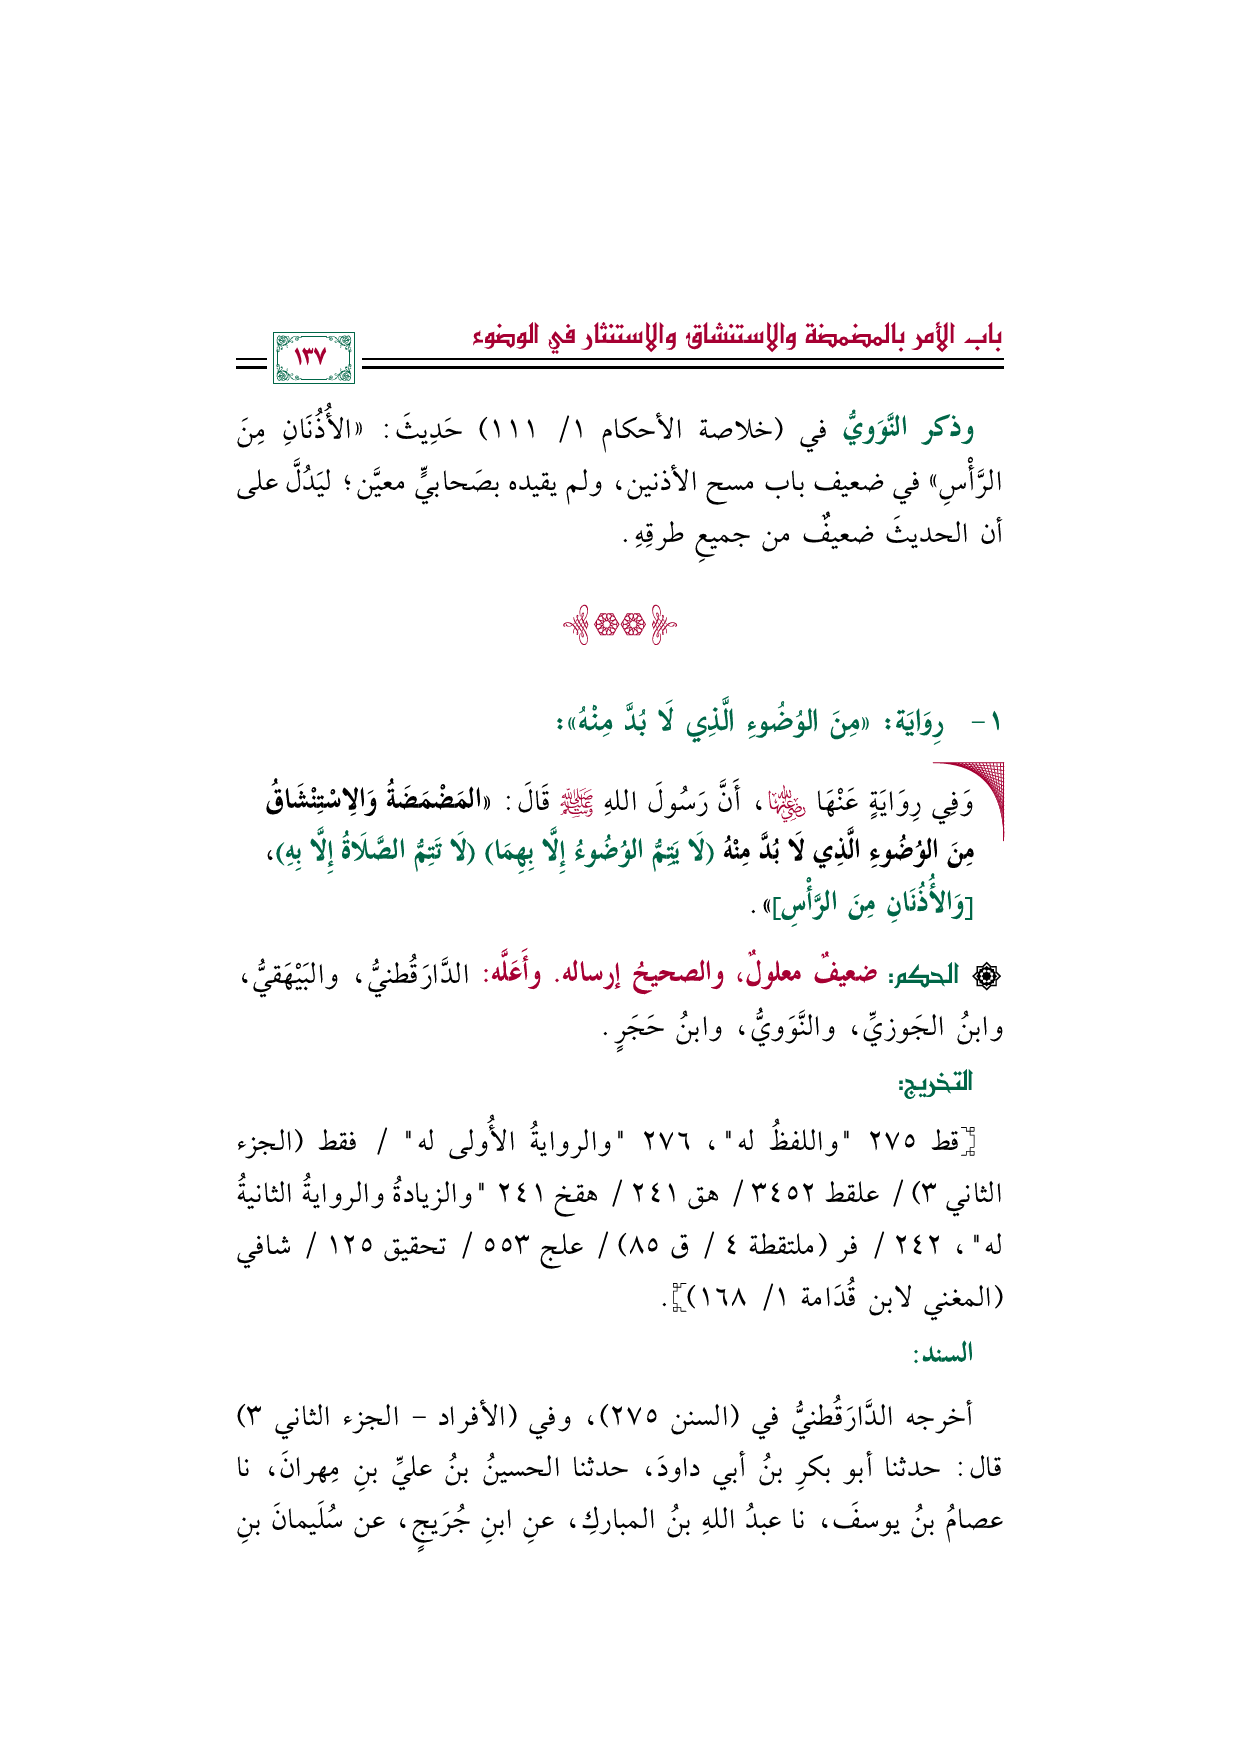 باب الأمر بالمضمضة والاستنشاق والاستنثار في الوضوء
١٣٧
وذكر النَّوَويُّ في (خلاصة الأحكام ١/ ١١١) حَدِيثَ: «الأُذُنَانِ مِنَ
الرَّأْسِ» في ضعيف باب مسح الأذنين، ولم يقيده بصَحابيٍّ معيَّن؛ ليَدُلَّ على
أن الحديثَ ضعيفٌ من جميعِ طرقِهِ.
١- رِوَايَة: «مِنَ الوُضُوءِ الَّذِي لَا بُدَّ مِنْهُ»:
وَفِي رِوَايَةٍ عَنْهَا رضي الله عنها، أَنَّ رَسُولَ اللهِ ﷺ قَالَ: «المَضْمَضَةُ وَالِاسْتِنْشَاقُ
مِنَ الوُضُوءِ الَّذِي لَا بُدَّ مِنْهُ (لَا يَتِمُّ الوُضُوءُ إِلَّا بِهِمَا) (لَا تَتِمُّ الصَّلَاةُ إِلَّا بِهِ)،
[وَالأُذُنَانِ مِنَ الرَّأْسِ]».
الحكم: ضعيفٌ معلولٌ، والصحيحُ إرساله. وأَعَلَّه: الدَّارَقُطنيُّ، والبَيْهَقيُّ،
وابنُ الجَوزيِّ، والنَّوَويُّ، وابنُ حَجَرٍ.
التخريج:
[قط ٢٧٥ "واللفظُ له"، ٢٧٦ "والروايةُ الأُولى له" / فقط (الجزء
الثاني ٣) / علقط ٣٤٥٢ / هق ٢٤١ / هقخ ٢٤١ "والزيادةُ والروايةُ الثانيةُ
له"، ٢٤٢ / فر (ملتقطة ٤ / ق ٨٥) / علج ٥٥٣ / تحقيق ١٢٥ / شافي
(المغني لابن قُدَامة ١/ ١٦٨)].
السند:
أخرجه الدَّارَقُطنيُّ في (السنن ٢٧٥)، وفي (الأفراد – الجزء الثاني ٣)
قال: حدثنا أبو بكرِ بنُ أبي داودَ، حدثنا الحسينُ بنُ عليِّ بنِ مِهرانَ، نا
عصامُ بنُ يوسفَ، نا عبدُ اللهِ بنُ المباركِ، عنِ ابنِ جُرَيجٍ، عن سُلَيمانَ بنِ